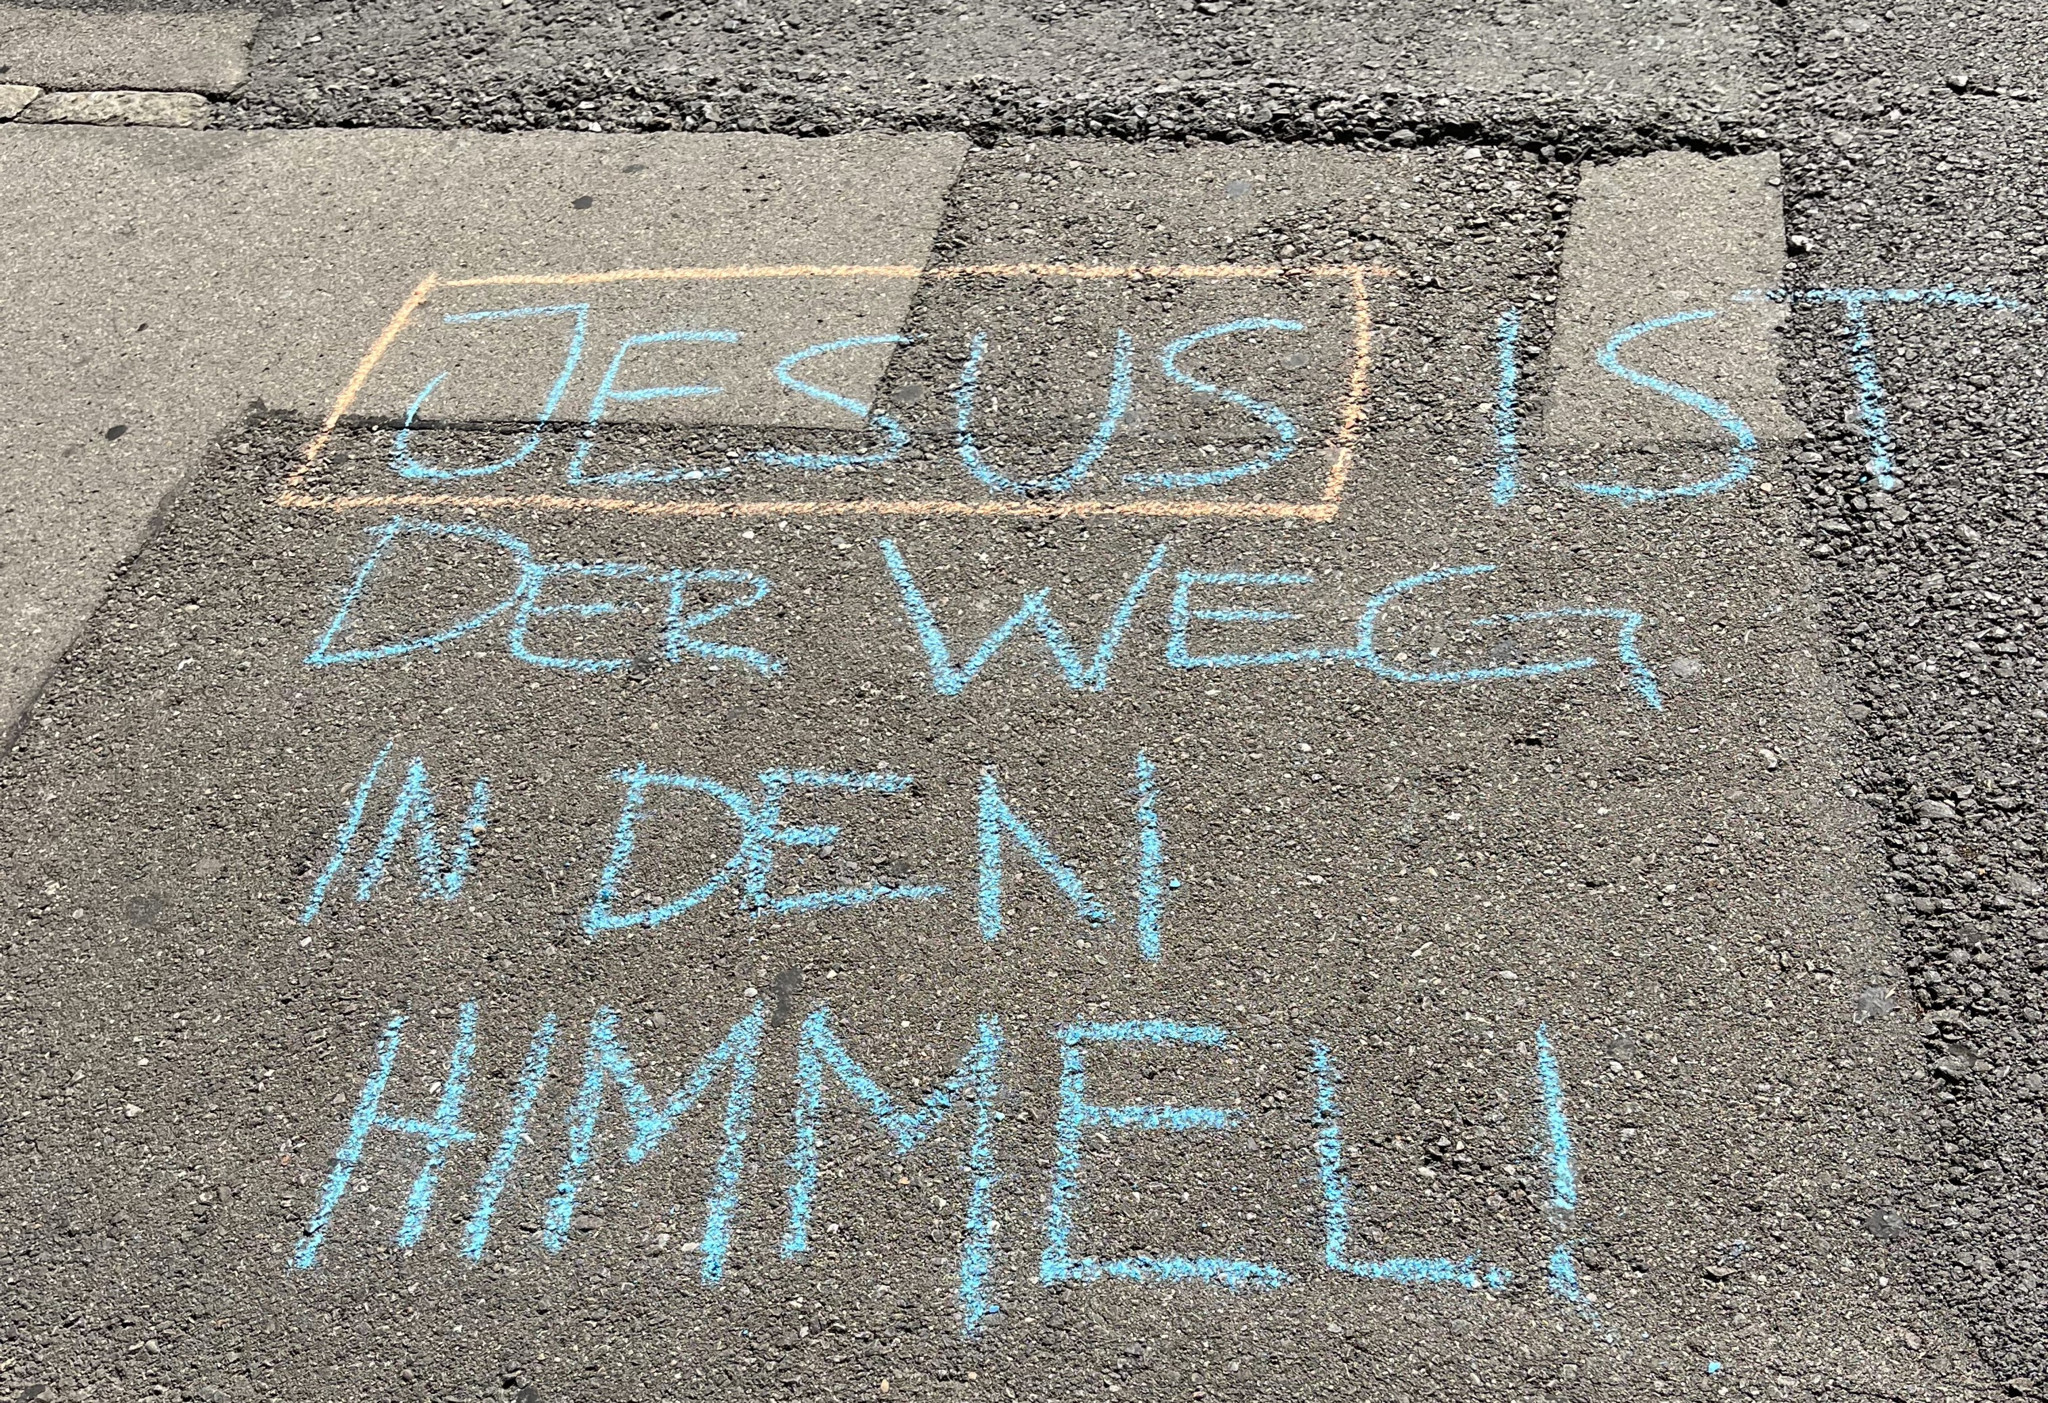 JESUS IST
DER WEG
IN DEN
HIMMEL!